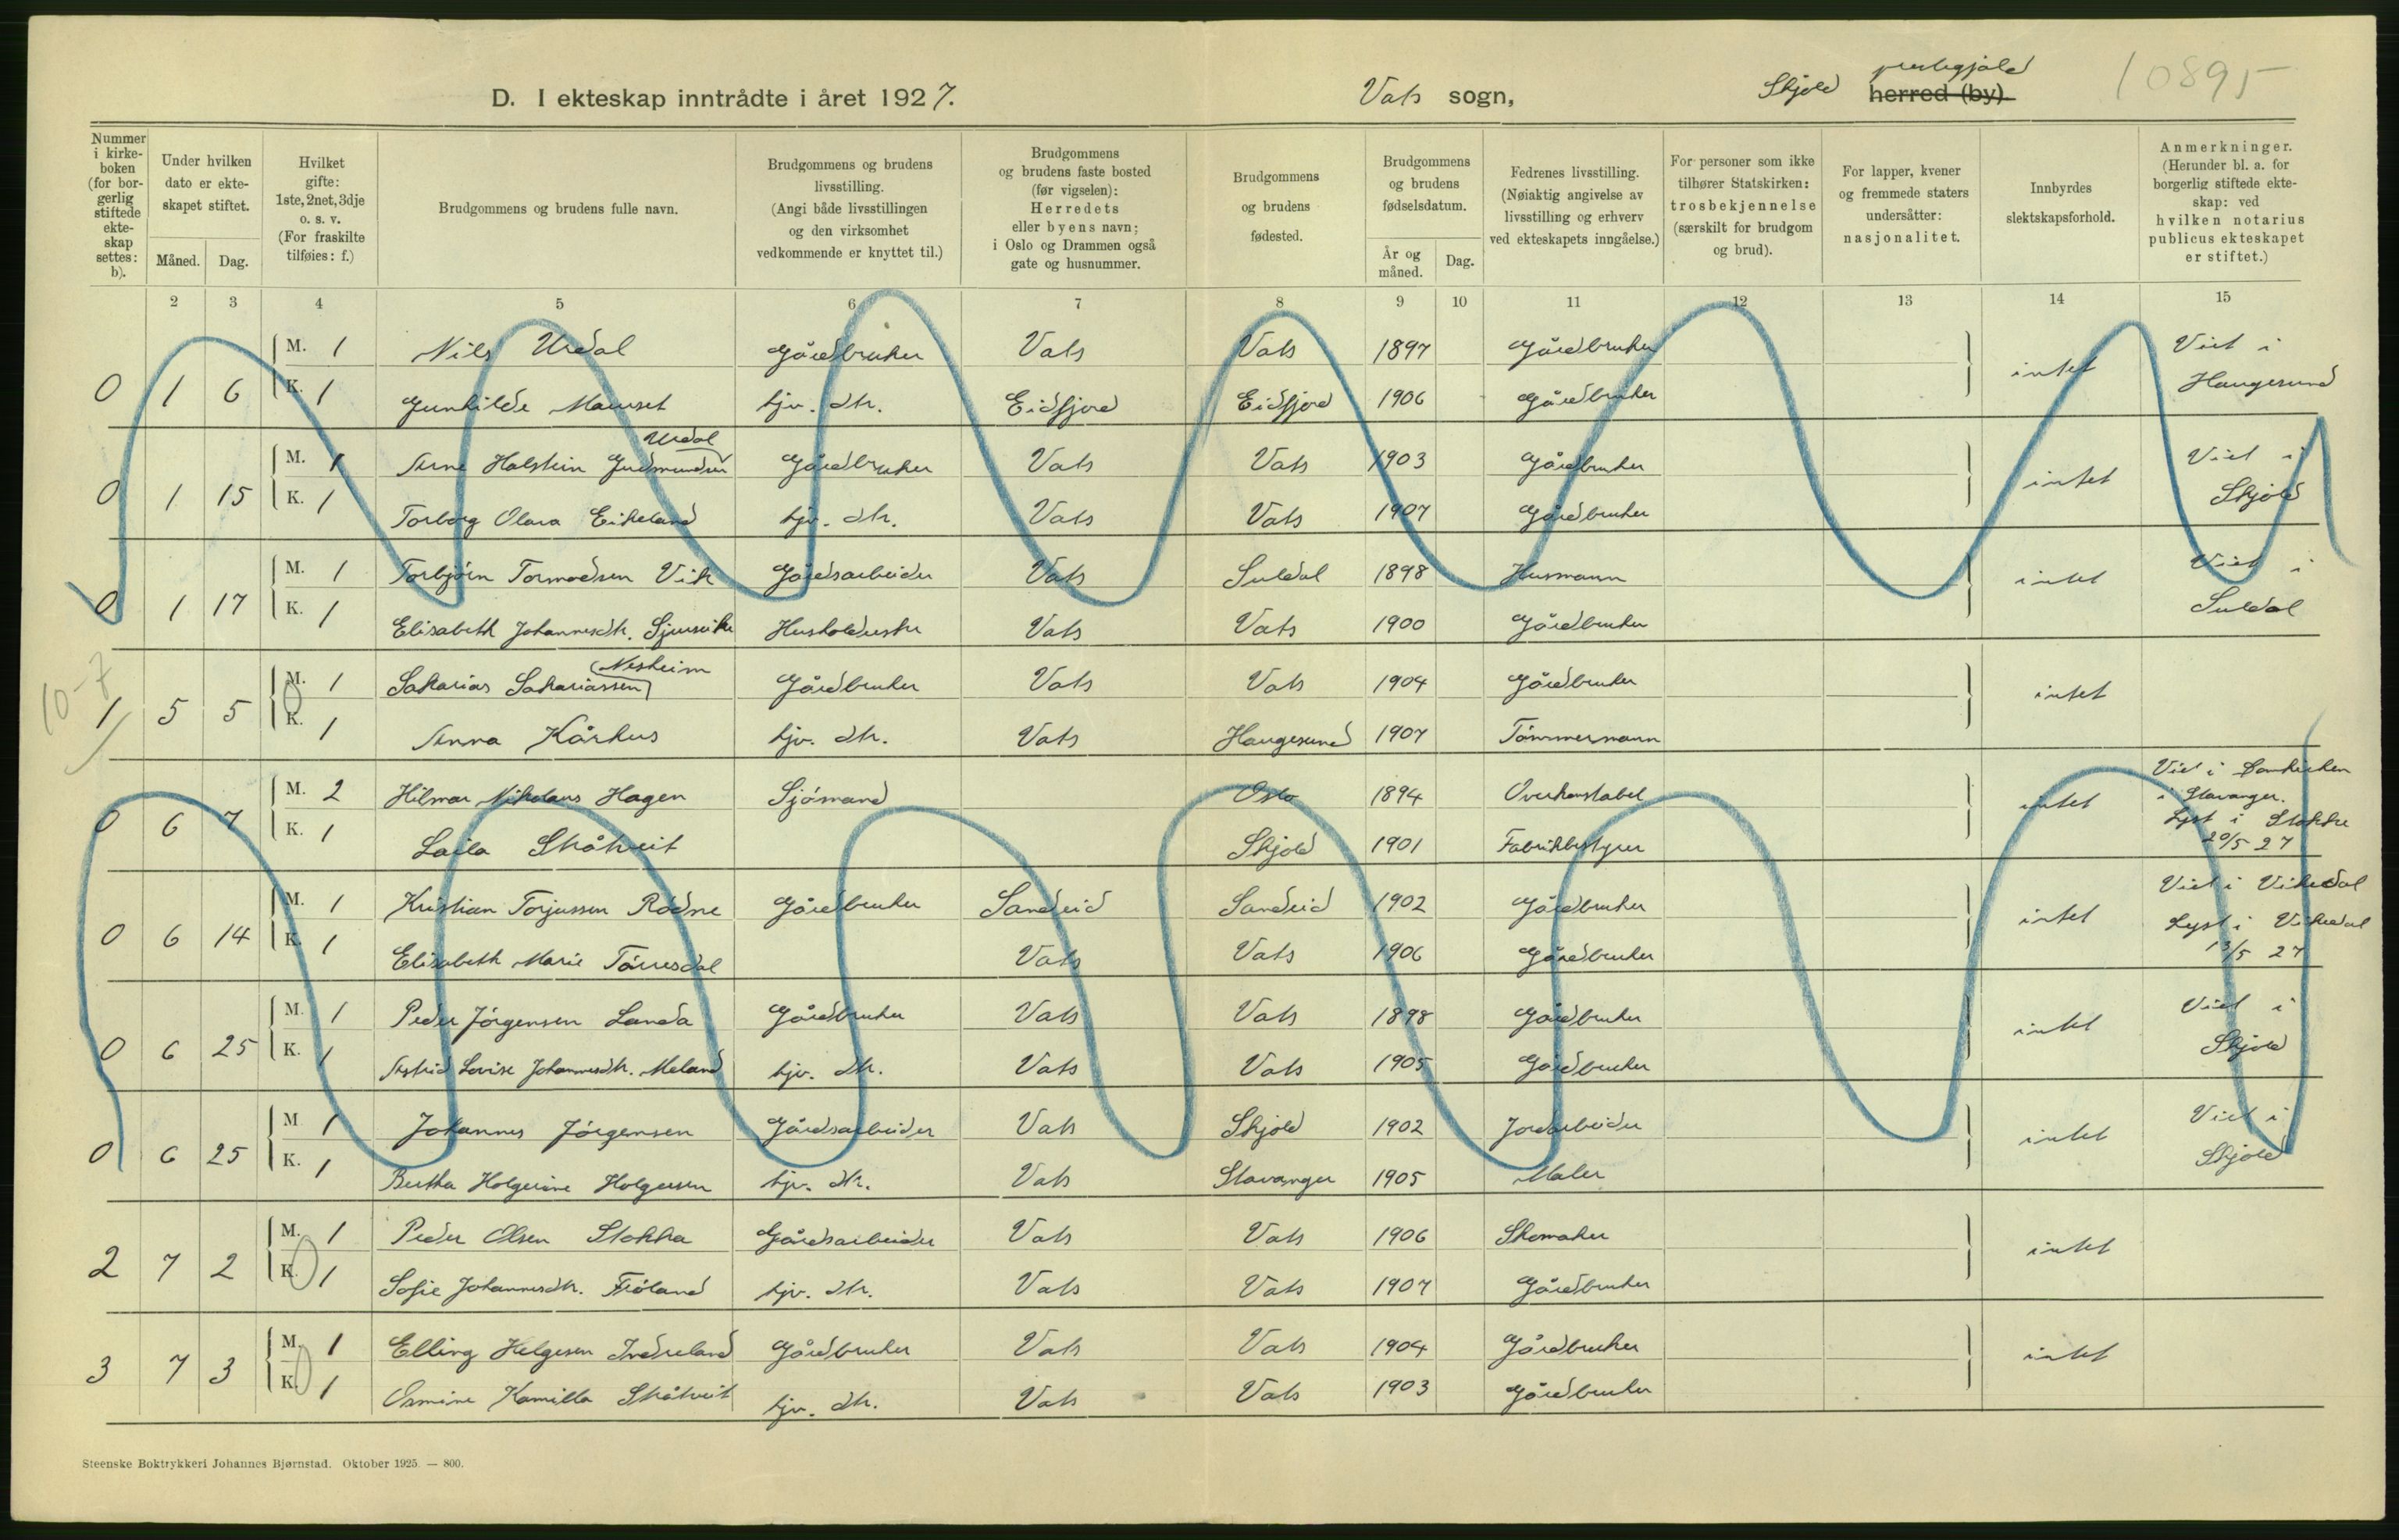 D. I ekteskap inntrådte i året 1927.
Vats sogn,
Skjold prestegjeld herred (by).
10895
Nummer i kirkeboken (for borgerlig stiftede ekteskap settes: b).
Under hvilken dato er ekteskapet stiftet.
Måned. Dag.
Hvilket gifte: 1ste, 2net, 3dje o. s. v. (For fraskilte tilføies: f.)
Brudgommens og brudens fulle navn.
Brudgommens og brudens livsstilling. (Angi både livsstillingen og den virksomhet vedkommende er knyttet til.)
Brudgommens og brudens faste bosted (før vigselen): Herredets eller byens navn; i Oslo og Drammen også gate og husnummer.
Brudgommens og brudens fødested.
Brudgommens og brudens fødselsdatum.
År og måned. Dag.
Fedrenes livsstilling. (Nøiaktig angivelse av livsstilling og erhverv ved ekteskapets inngåelse.)
For personer som ikke tilhører Statskirken: trosbekjennelse (særskilt for brudgom og brud).
For lapper, kvener og fremmede staters undersåtter: nasjonalitet.
Innbyrdes slektskapsforhold.
Anmerkninger. (Herunder bl. a. for borgerlig stiftede ekteskap: ved hvilken notarius publicus ekteskapet er stiftet.)
2 3 4 5 6 7 8 9 10 11 12 13 14 15
M. 1 Nils Urdal Gårdbruker Vats Vats 1897 Gårdbruker Viet i
0 1 6 K. 1 Gunhilde Maurset hjv. dtr. Eidfjord Eidfjord 1906 Gårdbruker intet Haugesund
M. 1 Arne Halstein Gudmundsen Urdal Gårdbruker Vats Vats 1903 Gårdbruker Viet i
0 1 15 K. 1 Torborg Olava Eikeland hjv. dtr. Vats Vats 1907 Gårdbruker intet Skjold
M. 1 Torbjörn Tormodsen Vik Gårdsarbeider Vats Suldal 1898 Husmann Viet i
0 1 17 K. 1 Elisabeth Johannesdtr. Husholderske Vats Vats 1900 Gårdbruker intet Suldal
10-7
M. 1 Sakarias Sakariassen (Nesheim) Gårdbruker Vats Vats 1904 Gårdbruker
1 5 5 K. 1 Anna Kårhus hjv. dtr. Vats Haugesund 1907 Tömmermann intet
M. 2 Hilmar Nikolaus Hagen Sjömand Oslo 1894 Overkonstabel Viet i Domkirken i Stavanger.
0 6 7 K. 1 Laila Skåtveit Skjold 1901 Fabrikkbestyrer intet Lyst i Stokke 20/5 27
M. 1 Kristian Torjussen Rödne Gårdbruker Sandeid Sandeid 1902 Gårdbruker Viet i Vikedal
0 6 14 K. 1 Elisabeth Marie Törresdal Vats Vats 1906 Gårdbruker intet Lyst i Vikedal 13/5 27
M. 1 Peder Jörgensen Landa Gårdbruker Vats Vats 1898 Gårdbruker Viet i
0 6 25 K. 1 Astrid Lovise Johannesdtr. Meland hjv. dtr. Vats Vats 1905 Gårdbruker intet Skjold
M 1 Johannes Jörgensen Gårdsarbeider Vats Skjold 1902 Jordarbeider Viet i
0 6 25 K. 1 Bertha Holgerine Holgersen hjv. dtr. Vats Stavanger 1905 Maler intet Skjold
M. 1 Peder Olsen Stakka Gårdsarbeider Vats Vats 1906 Skomaker
2 7 2 K. 1 Sofie Johannesdtr. Fröland hjv. dtr. Vats Vats 1907 Gårdbruker intet
M. 1 Elling Helgesen Indreland Gårdbruker Vats Vats 1904 Gårdbruker
3 7 3 K. 1 Osmine Kamilla Skåtveit hjv. dtr. Vats Vats 1903 Gårdbruker intet
Steenske Boktrykkeri Johannes Bjørnstad. Oktober 1925. — 800.